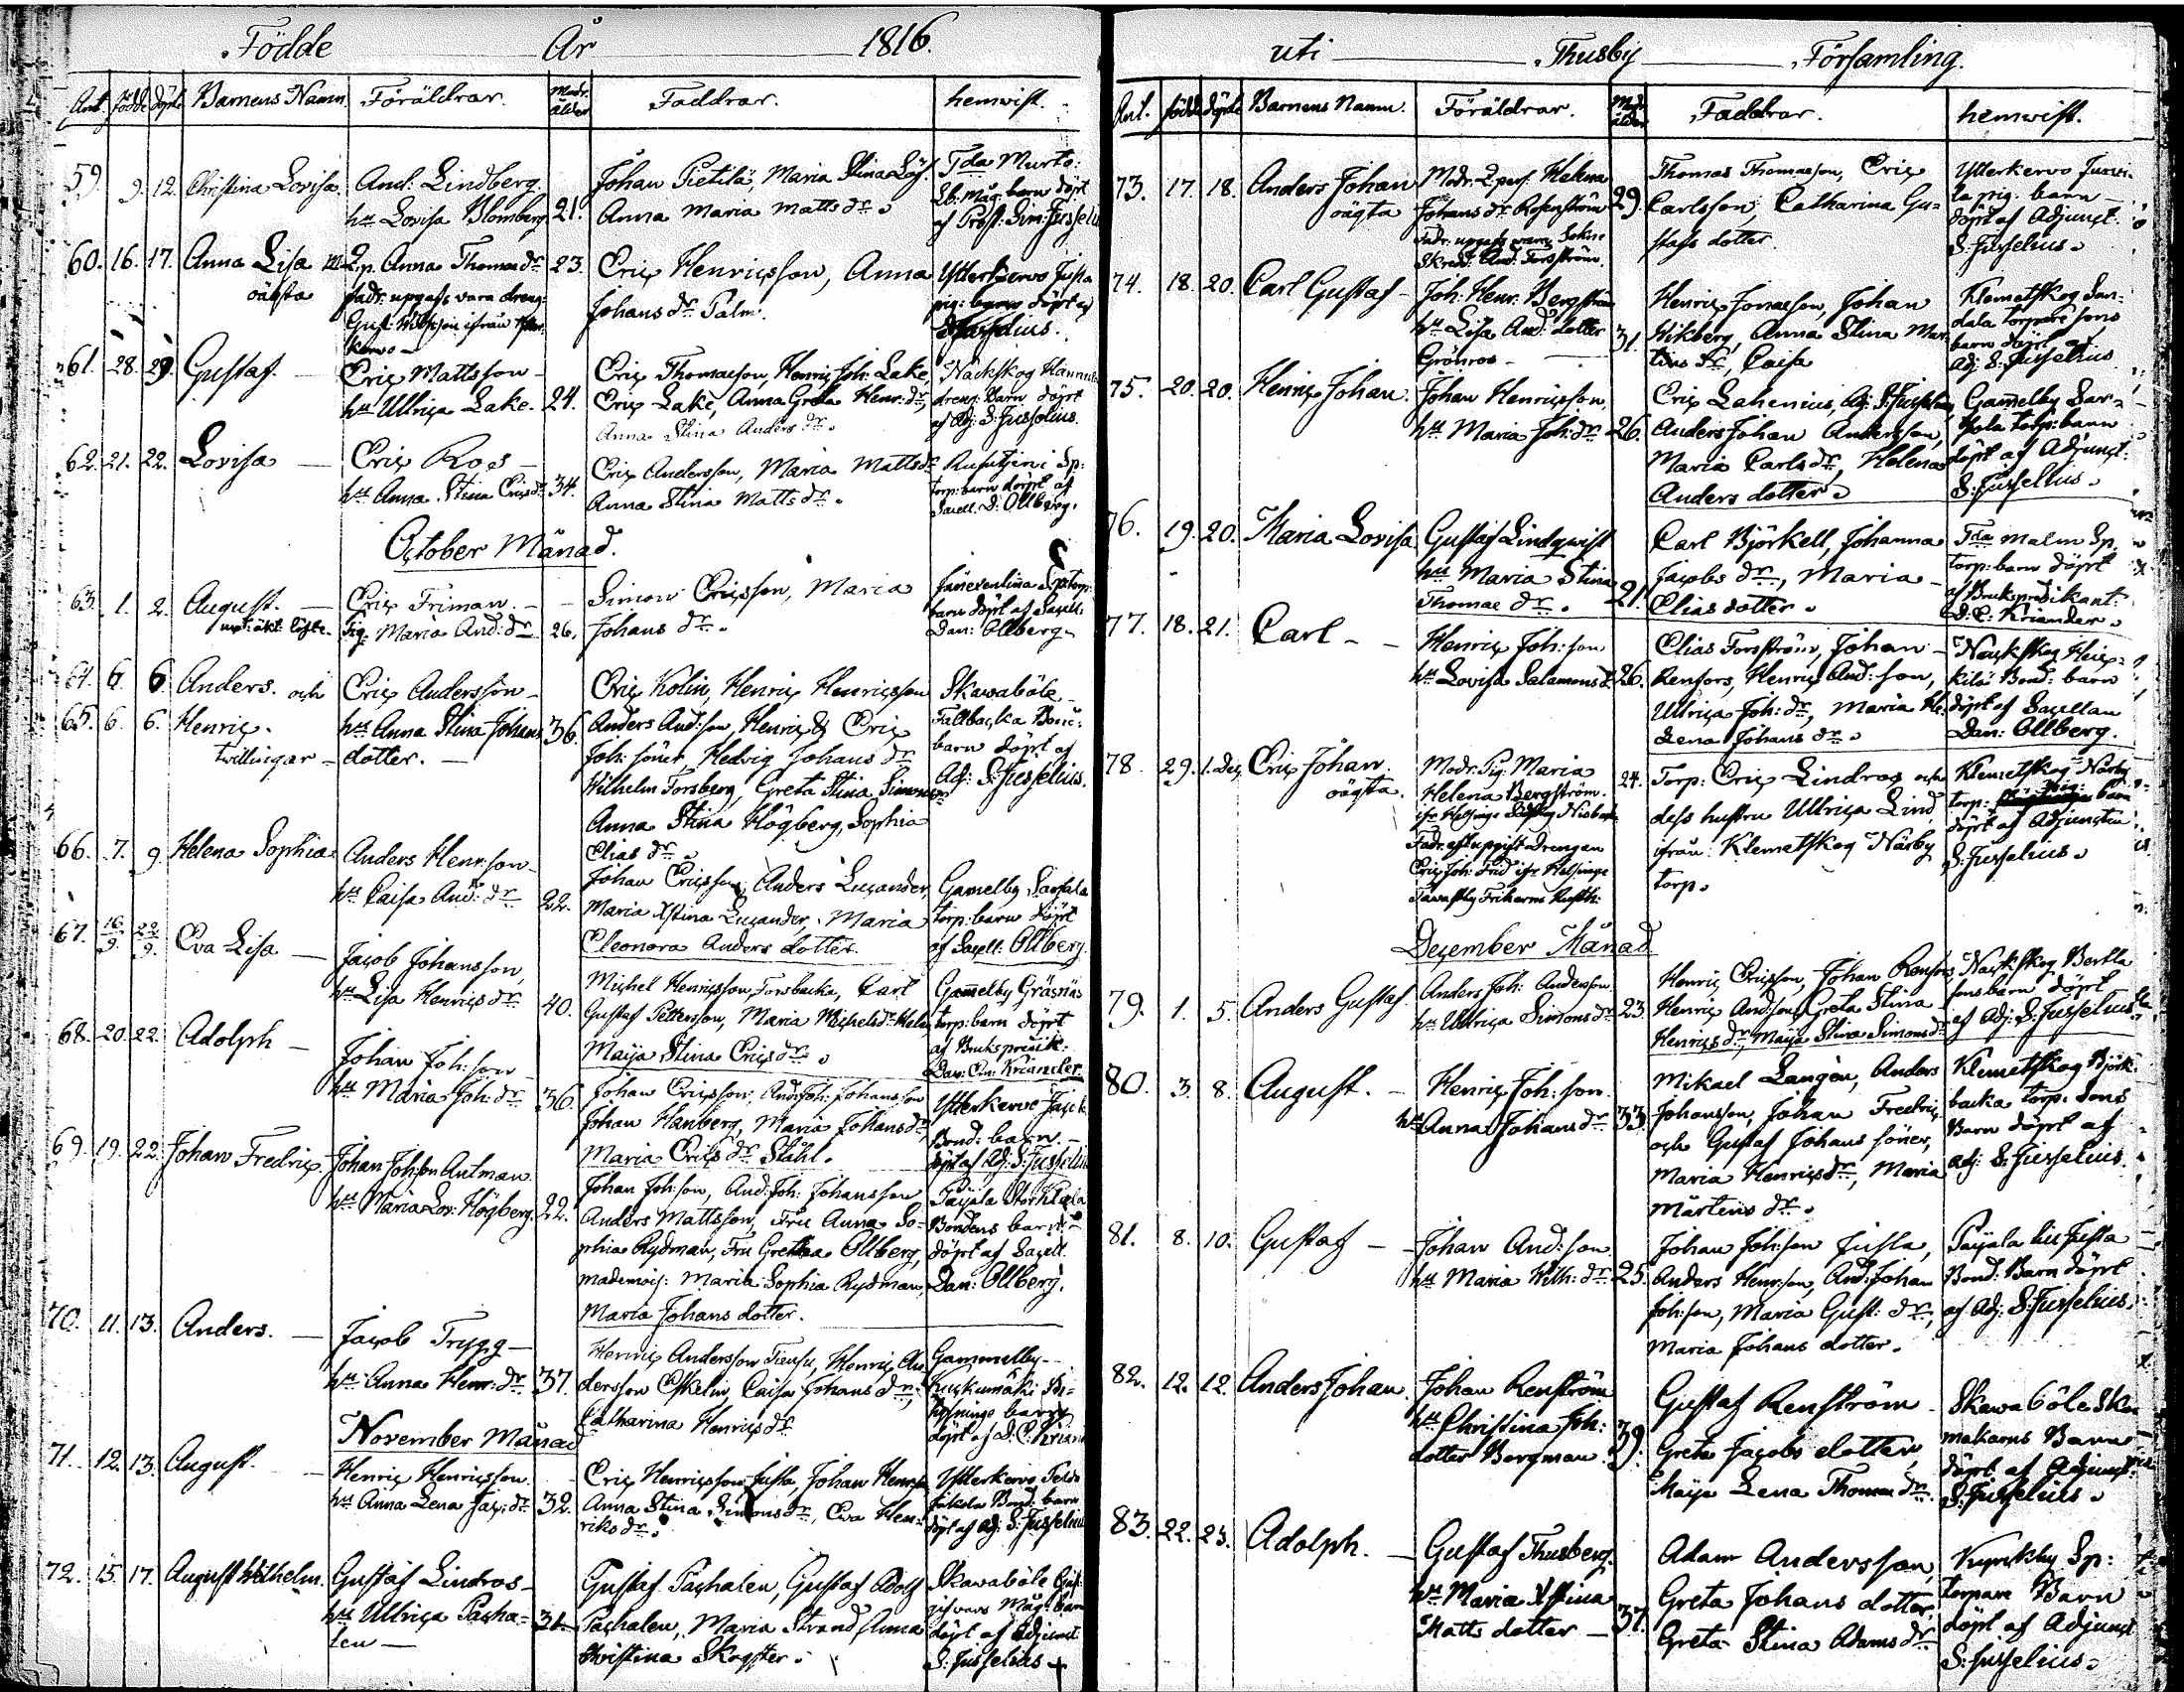 Födde År 1816.
Ant. Födde döpte Barnens Namn. Föräldrar. Modr. ålder Faddrar. hemvist.
59. 9. 12. Christina Lovisa And: Lindberg.
hu Lovisa Blomberg 21.
Johan Pietilä, Maria Stina Löf.
Anna Maria Matts dr.
barn döpt
60. 16. 17. Anna Lisa oäkta
Anna Thomæ dr 23.
fadr. upgafs vara dreng:
Eric Henricsson, Anna
Johans dr Palm.
61. 28. 29. Gustaf.
Eric Mattsson
hu Ullrica Lake. 24.
Eric Thomasson, Henric Joh: Lake,
Eric Lake, Anna Greta Henr: dr,
Anna Stina Anders dr.
dreng: Barn döpt
af Adj: S: Jusselius.
62. 21. 22. Lovisa
Eric Ros
hu Anna Stina Erics dr 34.
Eric Andersson, Maria Matts dr
Anna Stina Matts dr.
torp: barn döpt af
Sacell: D: Ollberg.
October Månad.
63. 1. 2. August.
Eric Friman.
Pig: Maria And: dr 26.
Simon Ericsson, Maria
Johans dr.
barn döpt af Sacell:
Dan: Ollberg
64. 6. 6. Anders. och
65. 6. 6. Henric.
twillingar
Eric Andersson
hu Anna Stina Johans 36.
dotter.
Eric Kolin, Henric Henricsson
Anders And:son, Henric & Eric
Joh: söner, Hedvig Johans dr
Wilhelm Forsberg, Greta Stina Simons dr
Anna Stina Högberg, Sophia
Elias dr.
Skavaböle
Fallbacka Bond:
barn döpt af
Adj: S: Jusselius.
66. 7. 9 Helena Sophia
Anders Henr:son
hu Caisa And: dr 22.
Johan Ericsson, Anders Lucander,
Maria Xstina Lucander, Maria
Eleonora Anders dotter.
Gamelby
torp: barn döpt
af Sacell: Ollberg
67. 16/9. 22/9. Eva Lisa
Jacob Johansson,
hu Lisa Henrics dr 40.
Michel Henricsson Forsbacka, Carl
Gustaf Pettersson, Maria Michels dr
Maija Stina Erics dr.
Gamelby Gräsnäs
torp: barn döpt
68. 20. 22. Adolph
Johan Joh:son
hu Maria Joh: dr 36.
Johan Ericsson, And: Joh: Johansson
Johan Hanberg, Maria Johans dr,
Maria Erics dr Ståhl.
Ytterkervo
Bond: barn.
döpt af Adj: S: Jusselius
69. 19. 22. Johan Fredric
Johan Joh:son Antman
hu Maria Lov: Högberg. 22.
Johan Joh:son, And: Joh: Johansson
Anders Mattsson, Fru Anna So-
phia Rydman, Fru Gretha Ollberg,
mademois: Maria Sophia Rydman,
Maria Johans dotter.
Bondens barn
döpt af Sacell.
Dan: Ollberg.
70. 11. 13. Anders.
Jacob Trygg
hu Anna Henr: dr 37.
Henric Andersson Henric An-
dersson Eskelin, Caisa Johans dr,
Catharina Henrics dr
Gammelby
November Månad
71. 12. 13. August.
Henric Henricsson.
hu Anna Lena Jac: dr 32.
Eric Henricsson Jussla, Johan Henr:son
Anna Stina Simons dr, Eva Hen-
riks dr.
Ytterkervo
Bond: barn
döpt af Adj: S: Jusselius
72. 15. 17. August Wilhelm.
Gustaf Lindros
hu Ullrica Pacha- 31.
len
Gustaf Pachalen, Gustaf Adolf
Pachalen, Maria Strand, Anna
Christina Skogster.
Skavaböle
döpt af Adjunct
S: Jusselius
uti Thusby Församling.
Ant. födde döpte Barnens Namn. Föräldrar. Modr. ålder Faddrar. hemvist.
73. 17. 18. Anders Johan
oäcta
Modr. Helena
Johans dr Rosenström 29.
Fadr. upgafs vara
Skred: And: Forsström.
Thomas Thomasson, Eric
Carlsson, Catharina Gu-
stafs dotter.
Ytterkervo
barn
döpt af Adjunct.
S: Jusselius.
74. 18. 20. Carl Gustaf
Joh: Henr: Bergström
hu Lisa And: dotter 31.
Grönros
Henric Jonasson, Johan
Wikberg, Anna Stina Mår
tens dr, Caisa
Klemetskog
barn döpt
Adj: S: Jusselius
75. 20. 20. Henric Johan.
Johan Henricsson,
hu Maria Joh: dr 26.
Eric Lahenius, Adj: S: Jusselius,
Anders Johan Andersson,
Maria Carls dr, Helena
Anders dotter.
Gamelby
torp: barn
döpt af Adjunct:
S: Jusselius.
76. 19. 20. Maria Lovisa
Gustaf Lindqwist
hu Maria Stina
Thomæ dr. 21.
Carl Björkell, Johanna
Jacobs dr, Maria
Elias dotter.
malm Sp.
torp: barn döpt
af Brukspredikant:
D: E: Kriander.
77. 18. 21. Carl
Henric Joh:son
hu Lovisa Salamons dr 26.
Elias Forsström, Johan
Renfors, Henric And:son,
Ullrica Joh: dr, Maria He-
lena Johans dr.
Nackskog
Bond: barn
döpt af Sacellan
Dan: Ollberg.
78. 29. 1. Dec. Eric Johan.
oäcta.
Modr. Pig: Maria 24.
Helena Bergström.
Torp: Eric Lindros och
dess hustru Ullrica Lind
ifrån Klemetskog Närby
torp.
Klemetskog Närby
torp: barn
döpt af Adjuncten
S: Jusselius.
December Månad
79. 1. 5. Anders Gustaf.
Anders Joh: Andersson.
hu Ullrica Simons dr 23.
Henric Ericsson, Johan Renfors
Henric And:son, Greta Stina
Henrics dr, Maija Stina Simons dr
Nackskog Bertla
sons barn döpt
af Adj: S: Jusselius
80. 3. 8. August.
Henric Joh:son
hu Anna Johans dr 33.
Mikael Langén, Anders
Johansson, Johan Fredric
och Gustaf Johans söner,
Maria Henrics dr, Maria
Mårtens dr.
Klemetskog Björk
backa torp: Sons
Barn döpt af
adj: S: Jusselius.
81. 8. 10. Gustaf
Johan And:son
hu Maria Wilh: dr 25.
Johan Joh:son Jusla,
Anders Henr:son, And: Johan
Joh:son, Maria Gust: dr,
Maria Johans dotter.
Paijala
Bond: Barn döpt
af Adj: S: Jusselius.
82. 12. 12. Anders Johan.
Johan Renström
hu Christina Joh:
dotter Bergman 39.
Gustaf Renström
Greta Jacobs dotter,
Maija Lena Thomæ dr.
Skavaböle Sko
makarns Barn
döpt af Adjunct:
S: Jusselius.
83. 22. 23. Adolph.
Gustaf Thusberg.
hu Maria Xstina
Matts dotter 37.
Adam Andersson
Greta Johans dotter,
Greta Stina Adams dr
Sp:
torpare Barn
döpt af Adjunct
S: Jusselius.